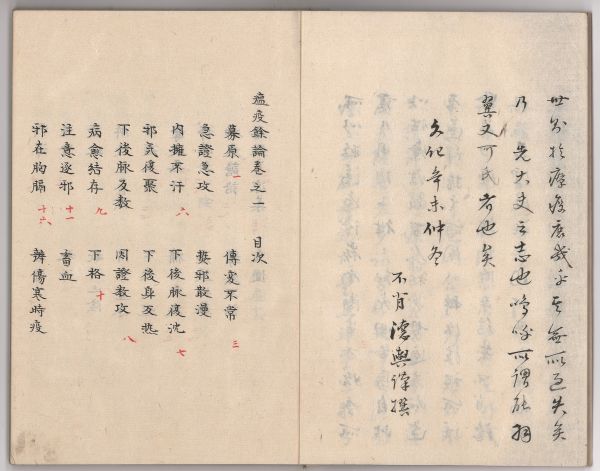 世於療疫庶幾乎其無所過失矣
乃先大夫之志也嗚呼所謂能羽
翼又可氏者也矣
文化辛未仲冬
不肖德輿謹撰
瘟疫餘論卷之一 目次
募原 一 傳変不常 三
急證急攻 熱邪散漫
内擁不汗 六 下後脉復沈 七
邪気復聚 下後身反熱
下後脉反数 因證数攻 八
病愈結存 九 下格 十
注意逐邪 十一 畜血
邪在胸膈 十六 辨傷寒時疫